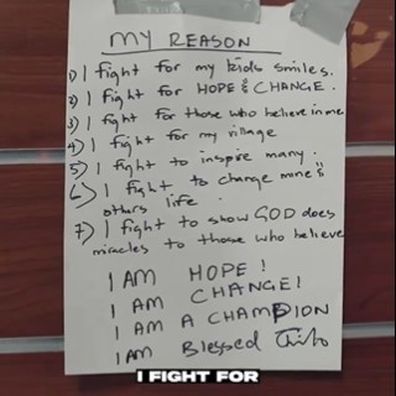 MY REASON
1) I fight for my kids smiles.
2) I fight for HOPE & CHANGE.
3) I fight for those who believe in me
4) I fight for my village
5) I fight to inspire many.
6) I fight to change mine &
others life.
7) I fight to show GOD does
miracles to those who believe
I AM HOPE!
I AM CHANGE!
I AM A CHAMPION
I AM Blessed
I FIGHT FOR